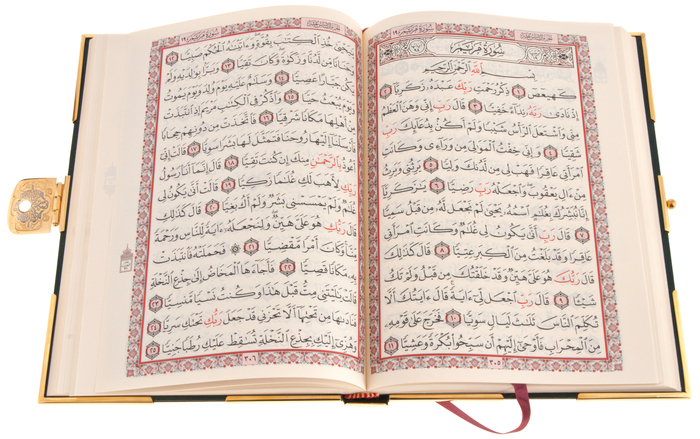 سُورَةُ مَرْيَمَ ١٩
سُورَةُ مَرْيَمَ
بِسْمِ اللَّهِ الرَّحْمَٰنِ الرَّحِيمِ
كٓهيعٓصٓ ١ ذِكْرُ رَحْمَتِ رَبِّكَ عَبْدَهُۥ زَكَرِيَّآ ٢
إِذْ نَادَىٰ رَبَّهُۥ نِدَآءً خَفِيًّا ٣ قَالَ رَبِّ إِنِّى وَهَنَ ٱلْعَظْمُ
مِنِّى وَٱشْتَعَلَ ٱلرَّأْسُ شَيْبًا وَلَمْ أَكُنۢ بِدُعَآئِكَ رَبِّ
شَقِيًّا ٤ وَإِنِّى خِفْتُ ٱلْمَوَٰلِىَ مِن وَرَآءِى وَكَانَتِ
ٱمْرَأَتِى عَاقِرًا فَهَبْ لِى مِن لَّدُنكَ وَلِيًّا ٥ يَرِثُنِى وَيَرِثُ
مِنْ ءَالِ يَعْقُوبَ وَٱجْعَلْهُ رَبِّ رَضِيًّا ٦ يَٰزَكَرِيَّآ
إِنَّا نُبَشِّرُكَ بِغُلَٰمٍ ٱسْمُهُۥ يَحْيَىٰ لَمْ نَجْعَل لَّهُۥ مِن قَبْلُ سَمِيًّا
٧ قَالَ رَبِّ أَنَّىٰ يَكُونُ لِى غُلَٰمٌ وَكَانَتِ ٱمْرَأَتِى
عَاقِرًا وَقَدْ بَلَغْتُ مِنَ ٱلْكِبَرِ عِتِيًّا ٨ قَالَ كَذَٰلِكَ
قَالَ رَبُّكَ هُوَ عَلَىَّ هَيِّنٌ وَقَدْ خَلَقْتُكَ مِن قَبْلُ وَلَمْ تَكُ
شَيْـًٔا ٩ قَالَ رَبِّ ٱجْعَل لِّىٓ ءَايَةً قَالَ ءَايَتُكَ أَلَّا
تُكَلِّمَ ٱلنَّاسَ ثَلَٰثَ لَيَالٍ سَوِيًّا ١٠ فَخَرَجَ عَلَىٰ قَوْمِهِۦ
مِنَ ٱلْمِحْرَابِ فَأَوْحَىٰٓ إِلَيْهِمْ أَن سَبِّحُوا۟ بُكْرَةً وَعَشِيًّا ١١
٣٠٥
سُورَةُ مَرْيَمَ ١٩
يَٰيَحْيَىٰ خُذِ ٱلْكِتَٰبَ بِقُوَّةٍ وَءَاتَيْنَٰهُ ٱلْحُكْمَ صَبِيًّا ١٢
وَحَنَانًا مِّن لَّدُنَّا وَزَكَوٰةً وَكَانَ تَقِيًّا ١٣ وَبَرًّۢا بِوَٰلِدَيْهِ وَلَمْ
يَكُن جَبَّارًا عَصِيًّا ١٤ وَسَلَٰمٌ عَلَيْهِ يَوْمَ وُلِدَ وَيَوْمَ يَمُوتُ
وَيَوْمَ يُبْعَثُ حَيًّا ١٥ وَٱذْكُرْ فِى ٱلْكِتَٰبِ مَرْيَمَ إِذِ ٱنتَبَذَتْ
مِنْ أَهْلِهَا مَكَانًا شَرْقِيًّا ١٦ فَٱتَّخَذَتْ مِن دُونِهِمْ حِجَابًا
فَأَرْسَلْنَآ إِلَيْهَا رُوحَنَا فَتَمَثَّلَ لَهَا بَشَرًا سَوِيًّا ١٧ قَالَتْ إِنِّىٓ
أَعُوذُ بِٱلرَّحْمَٰنِ مِنكَ إِن كُنتَ تَقِيًّا ١٨ قَالَ إِنَّمَآ أَنَا۠ رَسُولُ
رَبِّكِ لِأَهَبَ لَكِ غُلَٰمًا زَكِيًّا ١٩ قَالَتْ أَنَّىٰ يَكُونُ لِى
غُلَٰمٌ وَلَمْ يَمْسَسْنِى بَشَرٌ وَلَمْ أَكُ بَغِيًّا ٢٠ قَالَ كَذَٰلِكِ
قَالَ رَبُّكِ هُوَ عَلَىَّ هَيِّنٌ وَلِنَجْعَلَهُۥٓ ءَايَةً لِّلنَّاسِ وَرَحْمَةً
مِّنَّا وَكَانَ أَمْرًا مَّقْضِيًّا ٢١ ۞ فَحَمَلَتْهُ فَٱنتَبَذَتْ
بِهِۦ مَكَانًا قَصِيًّا ٢٢ فَأَجَآءَهَا ٱلْمَخَاضُ إِلَىٰ جِذْعِ ٱلنَّخْلَةِ
قَالَتْ يَٰلَيْتَنِى مِتُّ قَبْلَ هَٰذَا وَكُنتُ نَسْيًا مَّنسِيًّا ٢٣
فَنَادَىٰهَا مِن تَحْتِهَآ أَلَّا تَحْزَنِى قَدْ جَعَلَ رَبُّكِ تَحْتَكِ سَرِيًّا ٢٤
وَهُزِّىٓ إِلَيْكِ بِجِذْعِ ٱلنَّخْلَةِ تُسَٰقِطْ عَلَيْكِ رُطَبًا جَنِيًّا ٢٥
٣٠٦